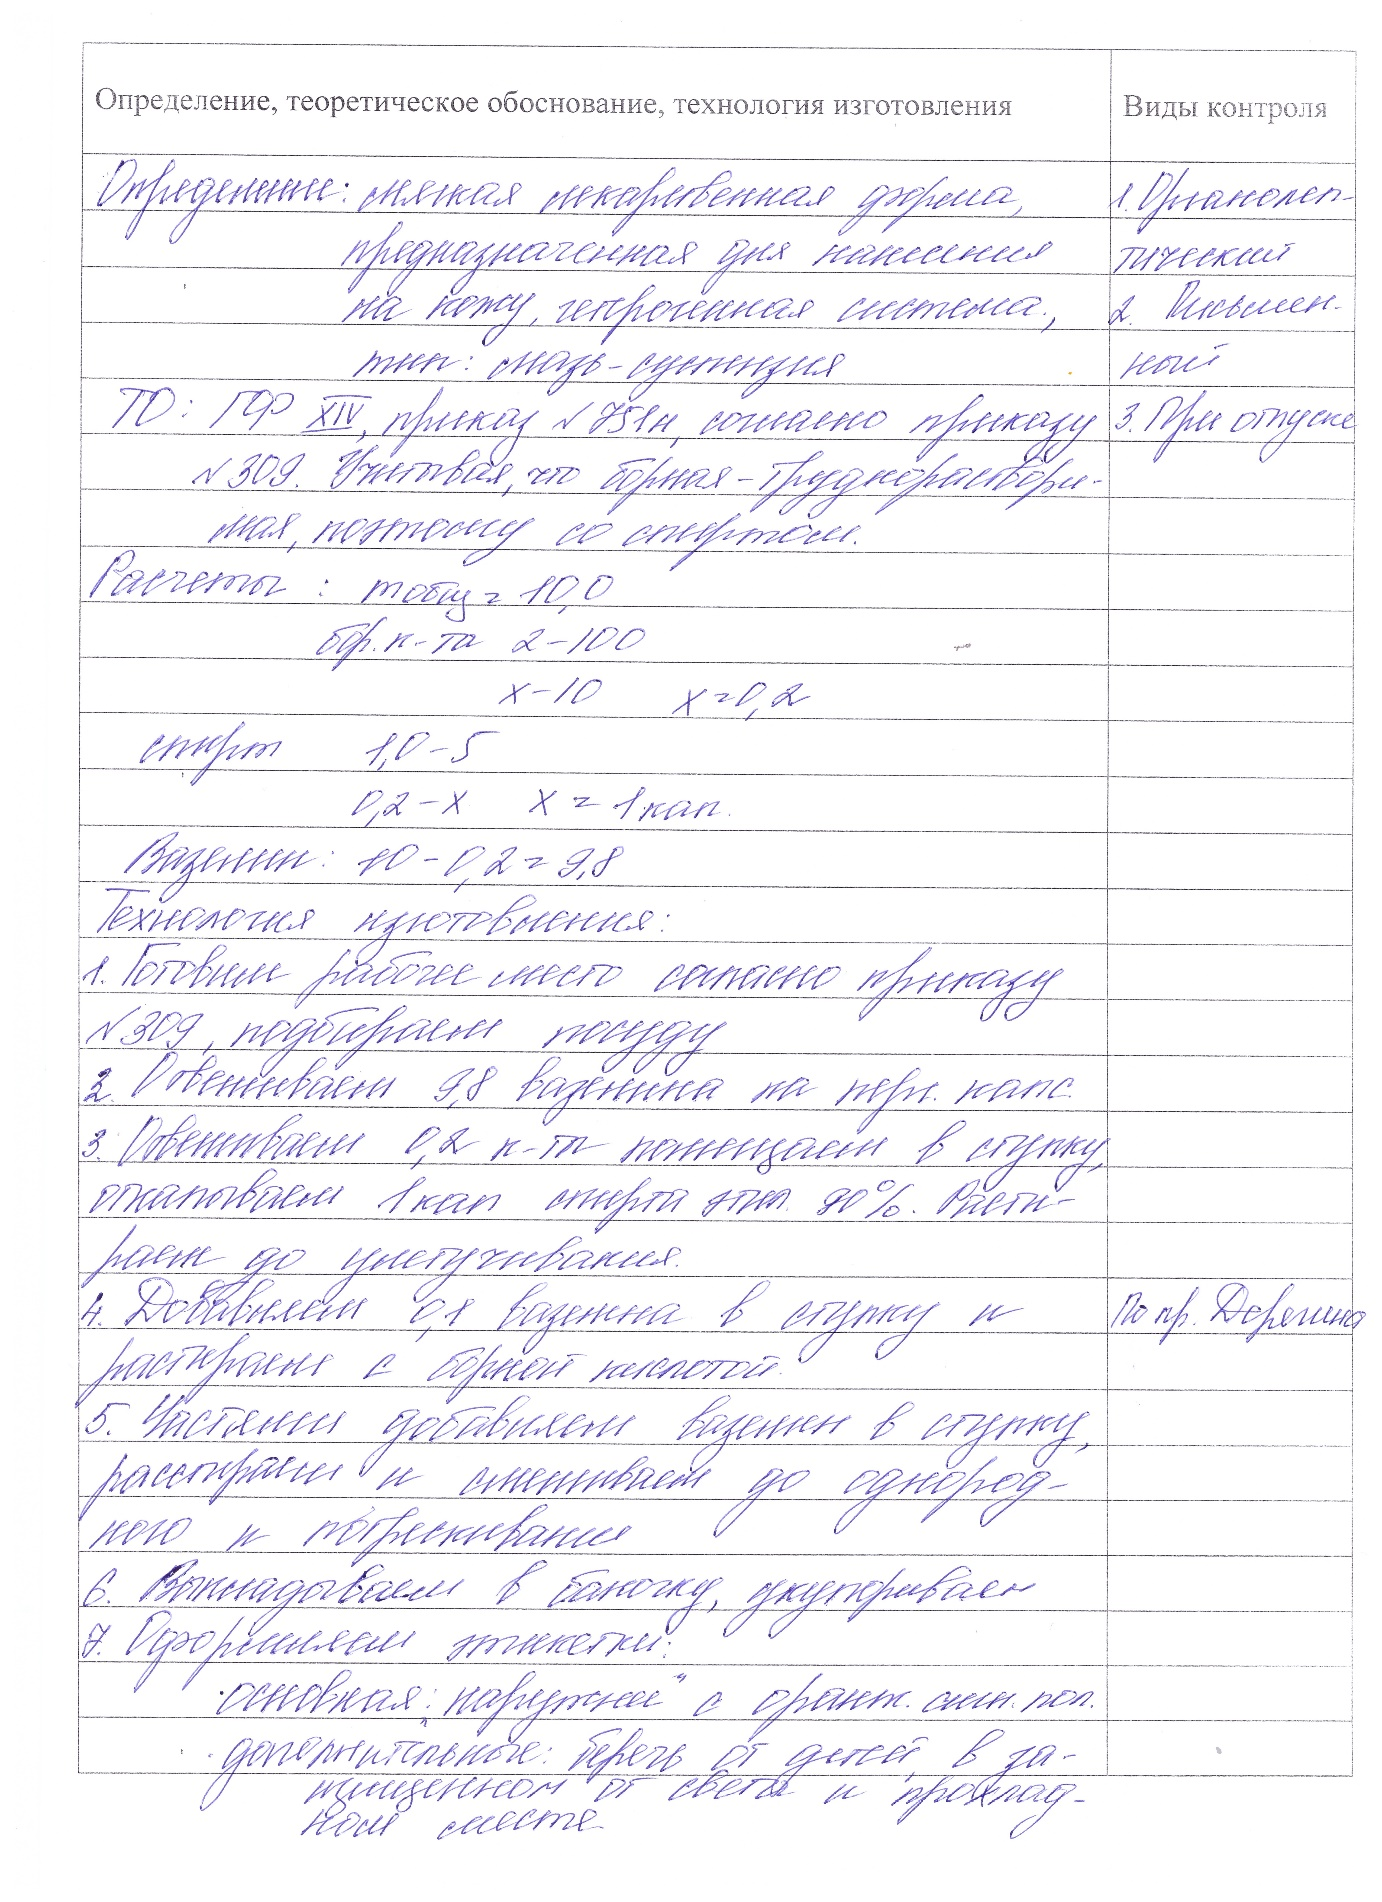 Определение, теоретическое обоснование, технология изготовления
Виды контроля
Определение: мягкая лекарственная форма,
предназначенная для нанесения
на кожу, гетерогенная система,
тип: мазь-суспензия
ТО: ГФ XIV, приказ №751н, согласно приказу
№309. Учитывая, что борная - труднораствори-
мая, поэтому со спиртом.
Расчеты: mобщ = 10,0
бор. к-та 2-100
х-10 х=0,2
спирт 1,0-5
0,2-х х = 1 кап.
Вазелин: 10-0,2=9,8
Технология изготовления:
1. Готовим рабочее место согласно приказу
№309, подбираем посуду
2. Отвешиваем 9,8 вазелина на перг. капс.
3. Отвешиваем 0,2 к-ты помещаем в ступку,
откапываем 1 кап спирта этил. 90%. Расти-
раем до улетучивания.
4. Добавляем 0,1 вазелина в ступку и
растираем с борной кислотой.
5. Частями добавляем вазелин в ступку,
и смешиваем до однород-
ного и потрескивания
6. Выкладываем в баночку, укупориваем
7. Оформляем этикетки:
основная: "наружное" с оранж. сигн. пол.
дополнительные: беречь от детей, в за-
щищенном от света и прохлад-
ном месте
1. Органолеп-
тический
2. Письмен-
ный
3. При отпуске
По пр. Дерягина